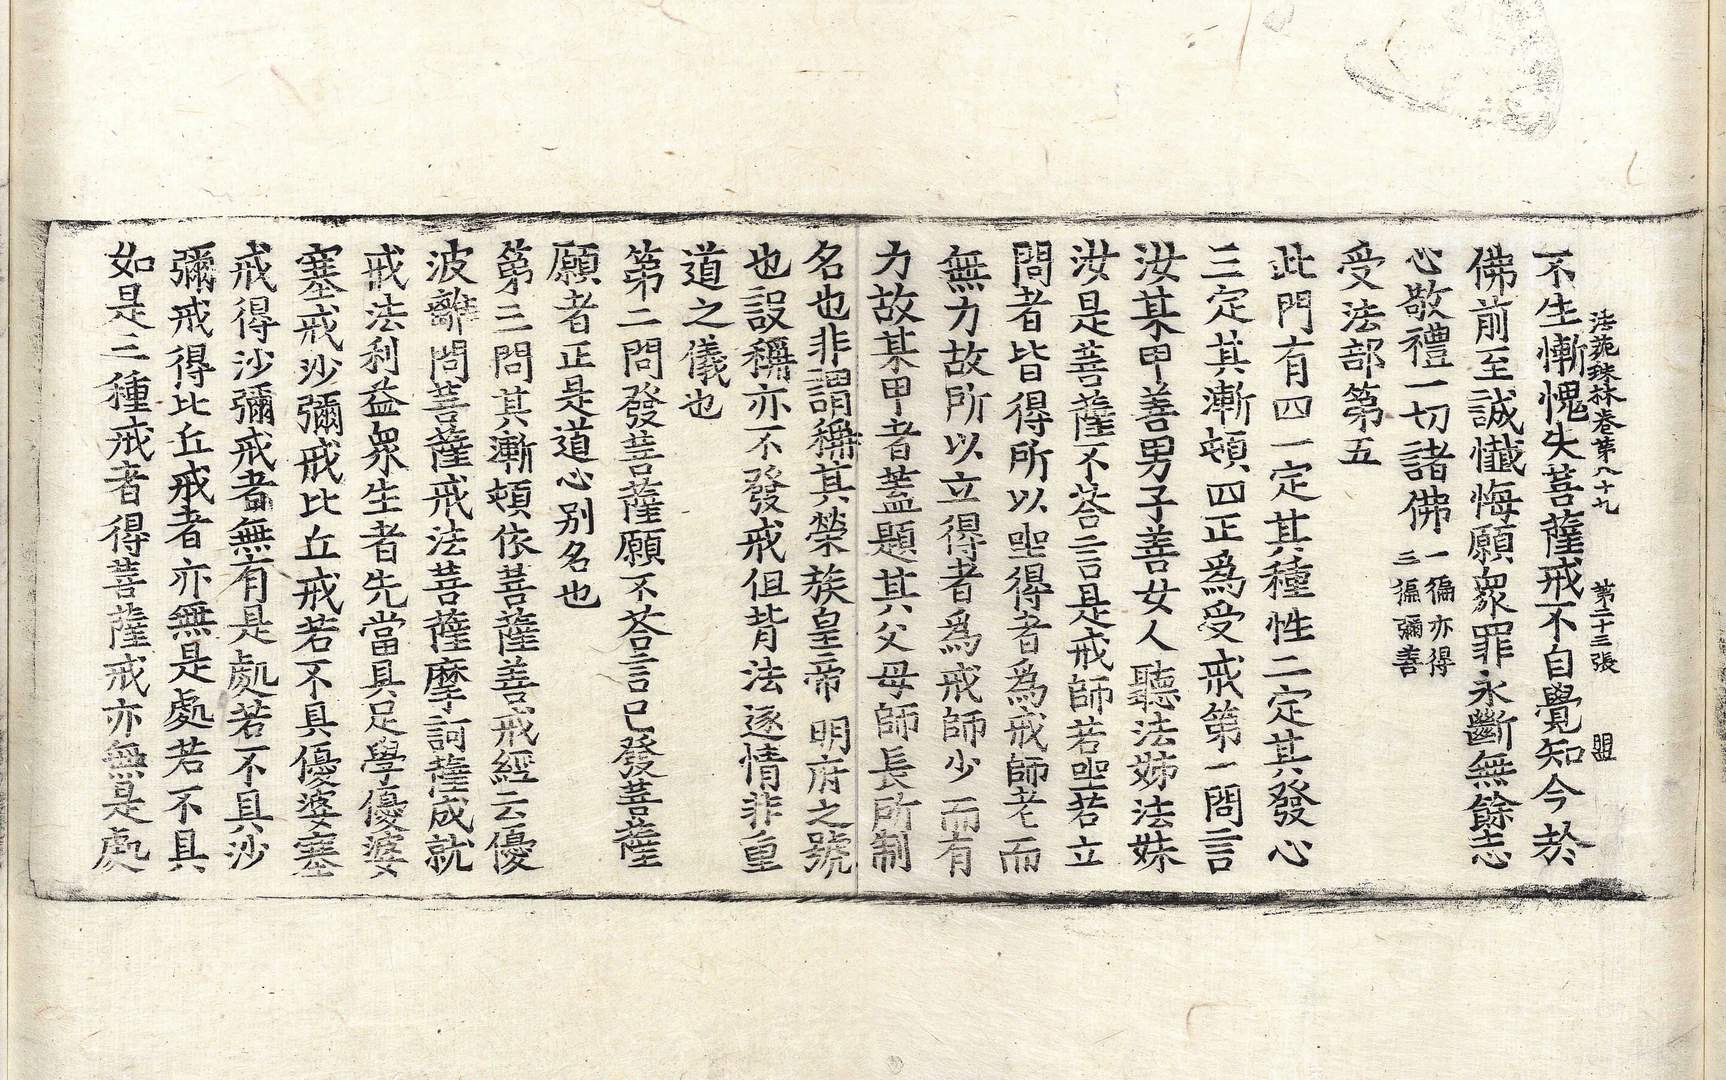 法苑珠林卷第八十九　第二十三張　盟
不生慚愧失菩薩戒不自覺知今於
佛前至誠懺悔願衆罪永斷無餘志
心敬禮一切諸佛一徧亦得三徧彌善
受法部第五
此門有四一定其種性二定其發心
三定其漸頓四正爲受戒第一問言
汝某甲善男子善女人聽法姊法妹
汝是菩薩不荅言是戒師若坐若立
問者皆得所以坐得者爲戒師老而
無力故所以立得者爲戒師少而有
力故某甲者盖題其父母師長所制
名也非謂稱其榮族皇帝明府之號
也設稱亦不發戒但背法逐情非重
道之儀也
第二問發菩薩願不荅言已發菩薩
願者正是道心别名也
第三問其漸頓依菩薩善戒經云優
波離問菩薩戒法菩薩摩訶薩成就
戒法利益衆生者先當具足學優婆
塞戒沙彌戒比丘戒若不具優婆塞
戒得沙彌戒者無有是處若不具沙
彌戒得比丘戒者亦無是處若不具
如是三種戒者得菩薩戒亦無是處